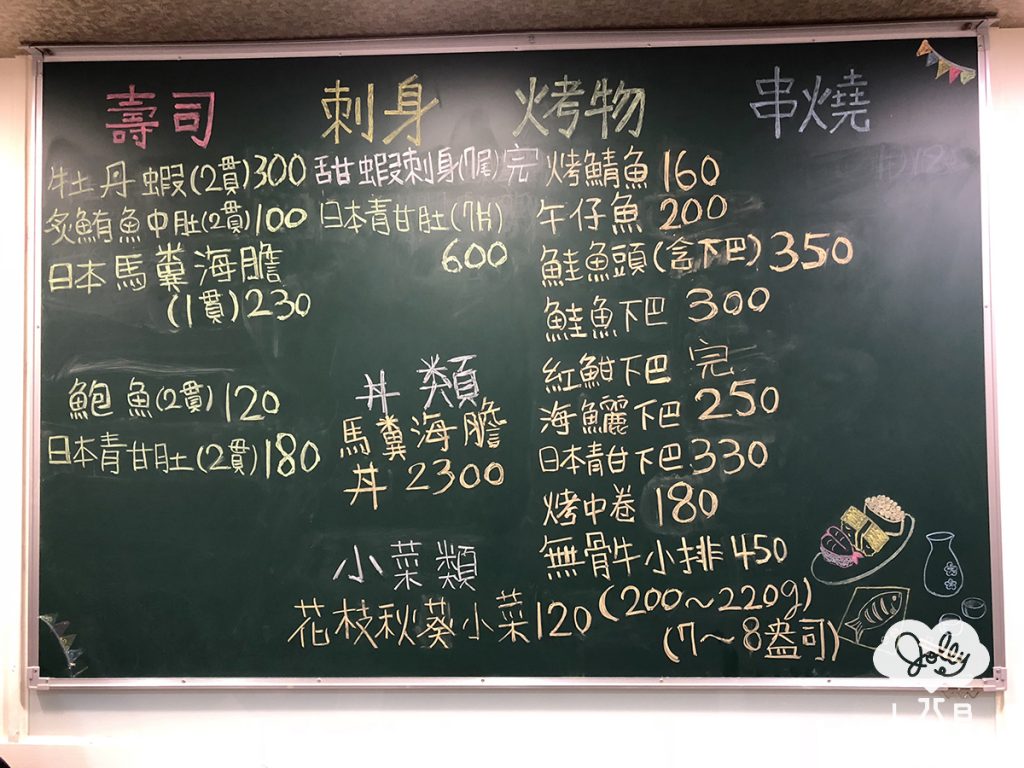 壽司
牡丹蝦(2貫)300
炙鮪魚中肚(2貫)100
日本馬糞海膽
(1貫)230
鮑魚(2貫)120
日本青甘肚(2貫)180
刺身
甜蝦刺身(7尾)完
日本青甘肚(7片)
600
丼類
馬糞海膽
丼2300
小菜類
花枝秋葵小菜120
烤物
烤鯖魚160
午仔魚200
鮭魚頭(含下巴)350
鮭魚下巴300
紅魽下巴完
海鱺下巴250
日本青甘下巴330
烤中卷180
無骨牛小排450
(200～220g)
(7～8盎司)
串燒
Jolly